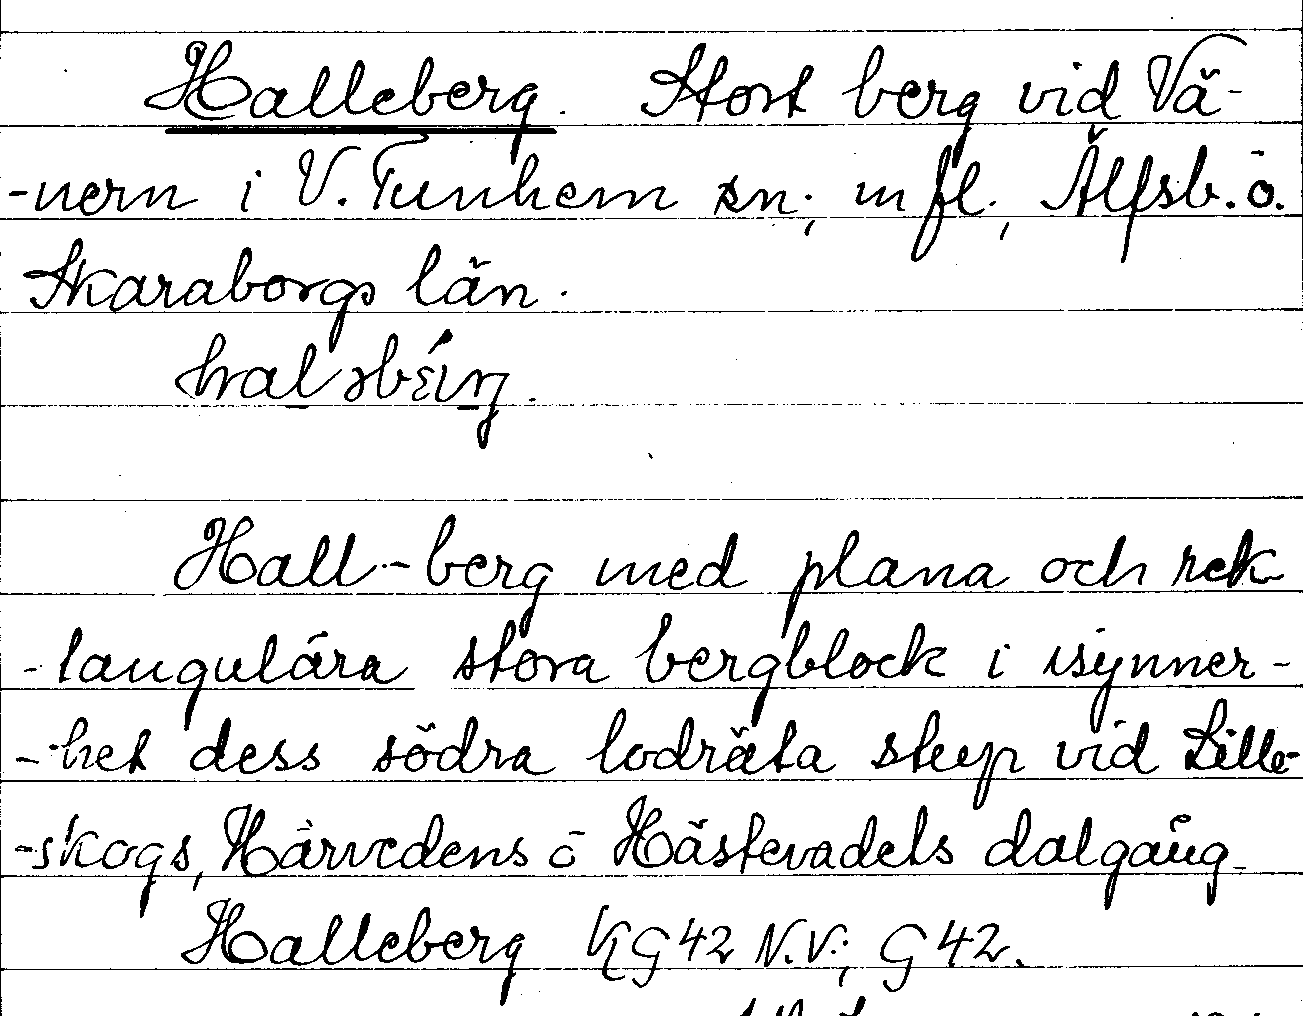 Halleberg. Stort berg vid Vä-
-nern i V. Tunhem sn; m fl., Älfsb. o.
Skaraborgs län.
Hall-berg med plana och rek
-tangulära stora bergblock i isynner-
-het dess södra lodräta stup vid Lille-
-skogs, Härvedens o Hästevadets dalgång
Halleberg KG42 N.V.; G42.